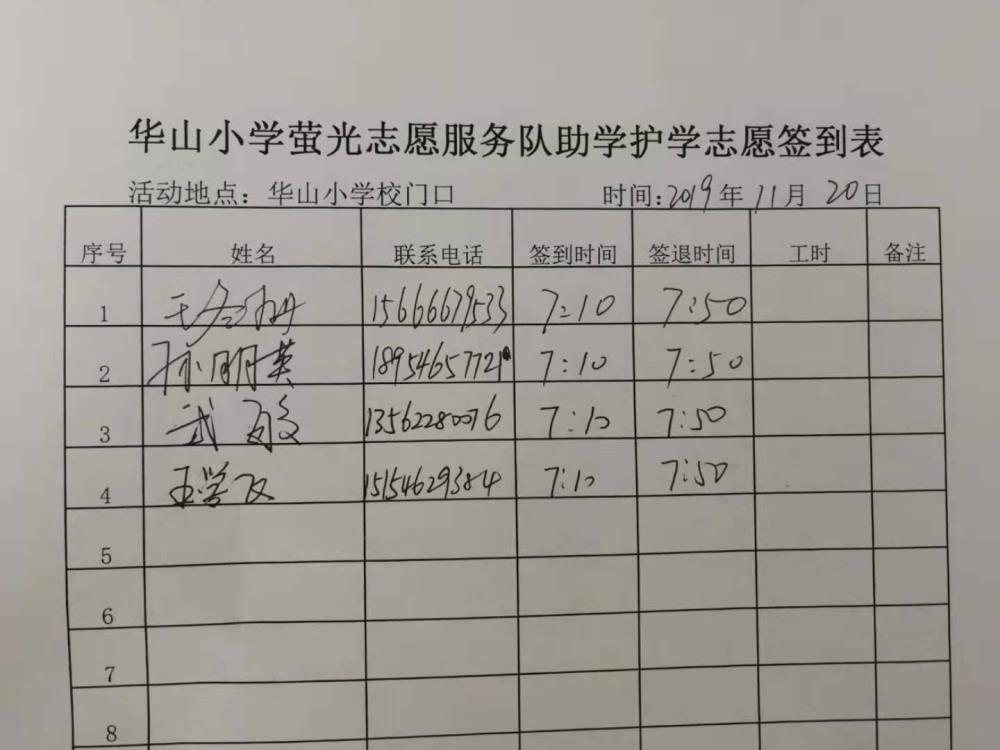 华山小学萤光志愿服务队助学护学志愿签到表
活动地点：华山小学校门口 时间:2019年11月20日
序号 姓名 联系电话 签到时间 签退时间 工时 备注
1 15666679533 7:10 7:50
2 孙明英 18954657721 7:10 7:50
3 武 13562280076 7:10 7:50
4 王学 15154629384 7:10 7:50
5
6
7
8